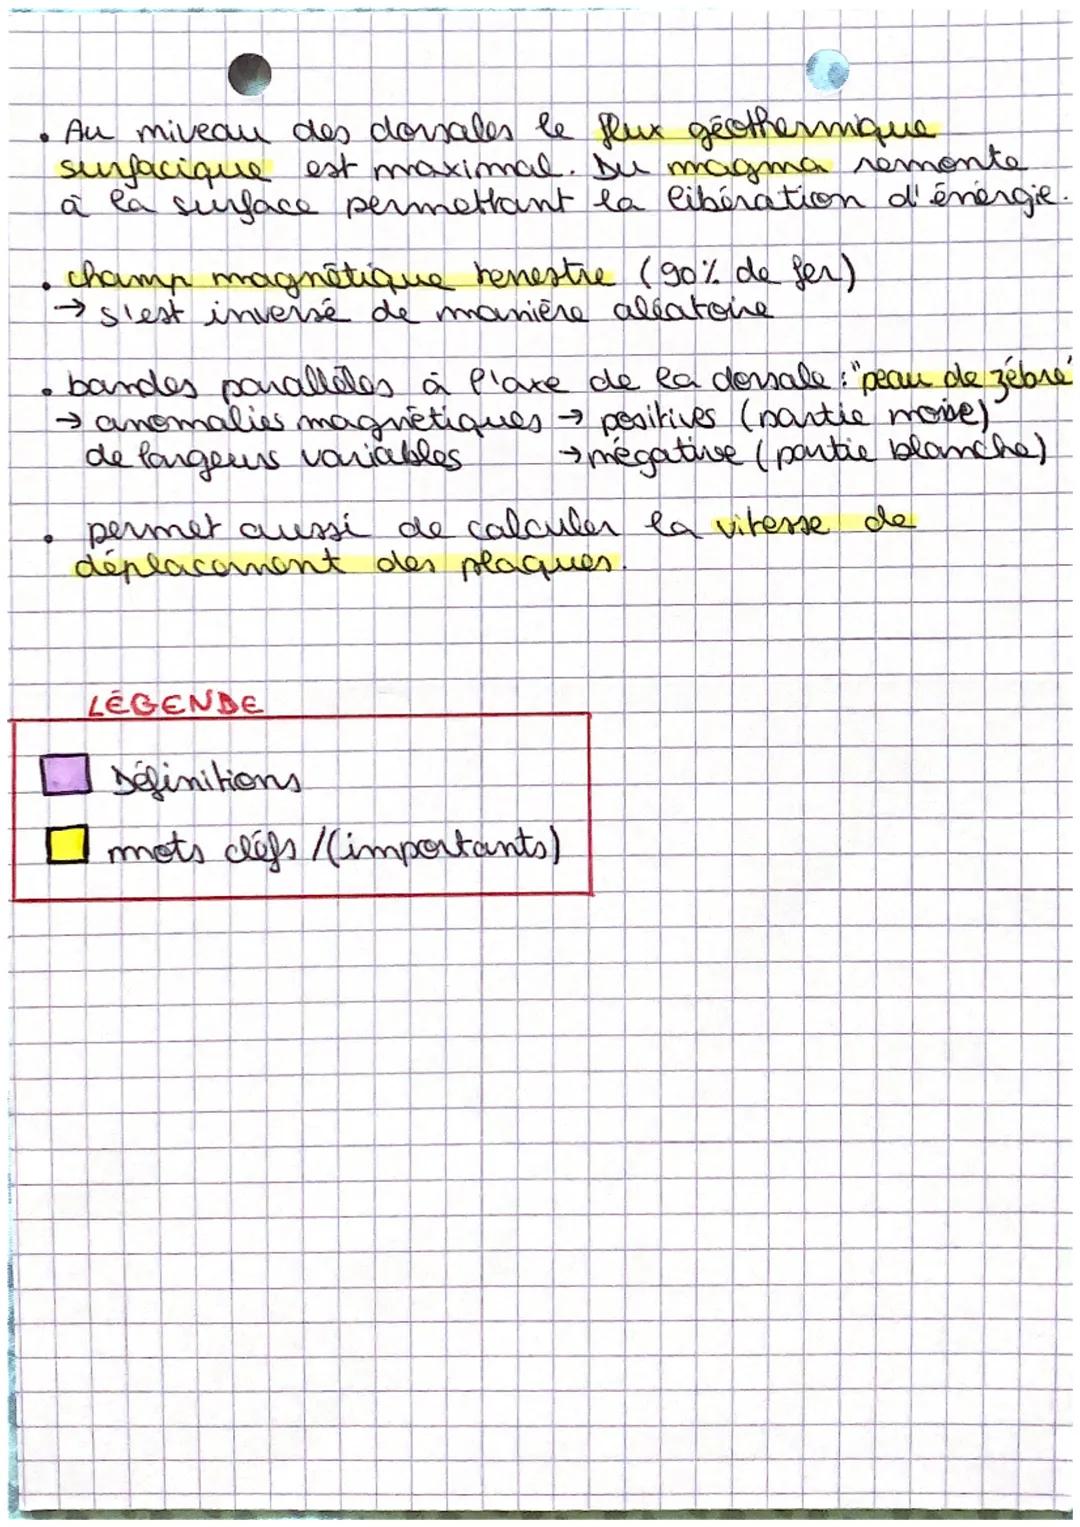 • Au niveau des dorsales le flux géothermique
surfacique est maximal. Du magma remonte
à la surface permettant la libération d'énergie.
• champ magnétique terrestre (90% de fer)
→ s'est inversé de manière aléatoire
• bandes parallèles à l'axe de la dorsale : "peau de zèbre"
→ anomalies magnétiques → positives (partie noire)
de largeurs variables → négative (partie blanche)
• permet aussi de calculer la vitesse de
déplacement des plaques.
LÉGENDE
Définitions
mots cléfs /(importants)